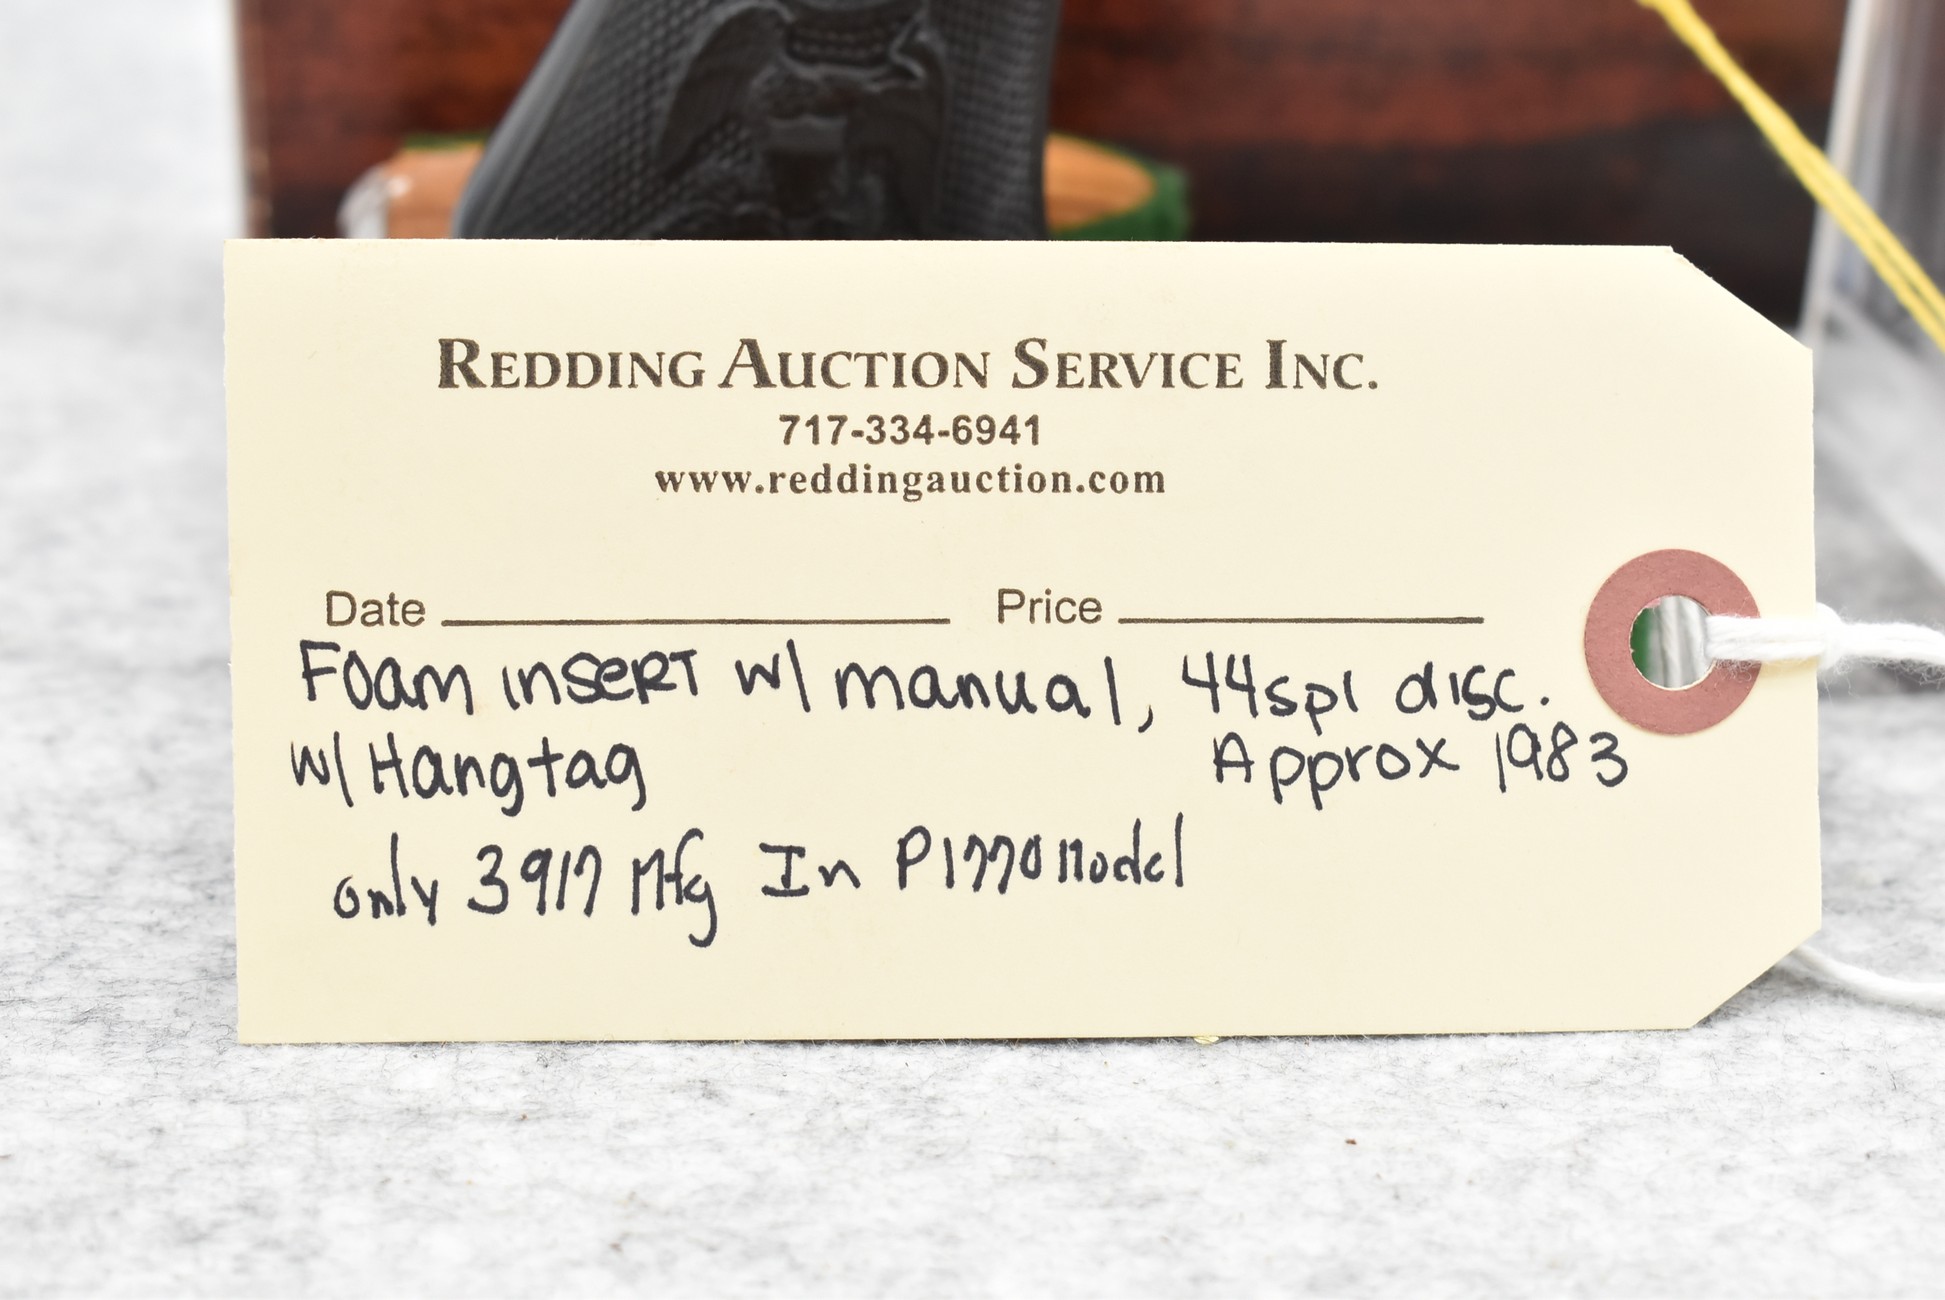 REDDING AUCTION SERVICE INC.
717-334-6941
www.reddingauction.com
Date Price
Foam insert w/ manual, 44spl disc.
w/ Hangtag Approx 1983
only 3917 Mfg In P1770 Model